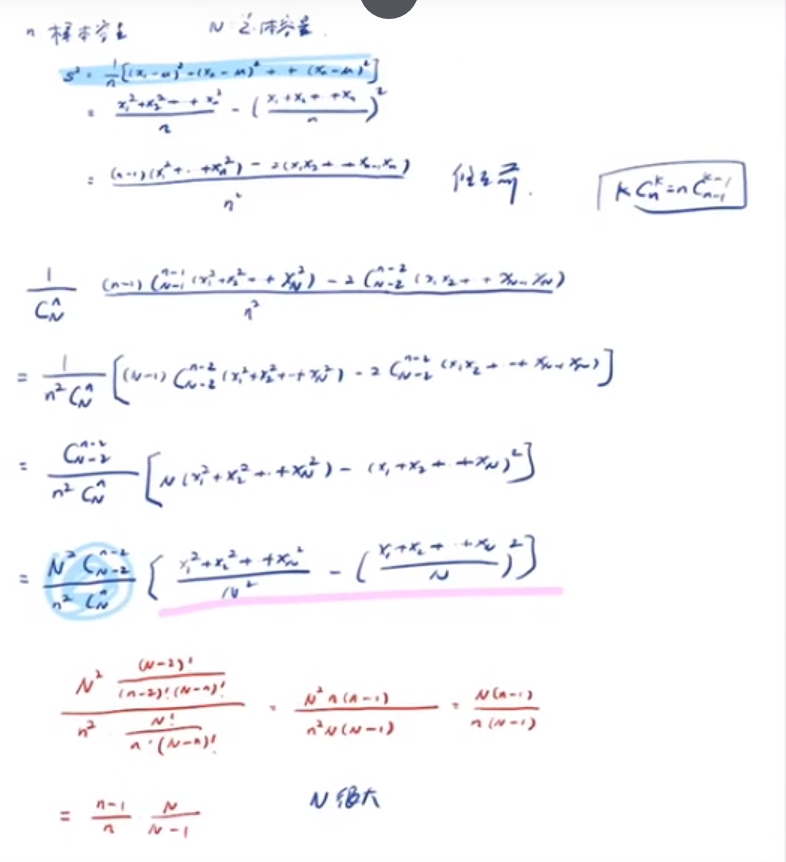 n 样本容量 N 总体容量
s² = 1/n [(x₁-μ)²+(x₂-μ)²+··+(xₙ-μ)²]
= (x₁²+x₂²+··+xₙ²)/n - ((x₁+x₂+··+xₙ)/n)²
= ((n-1)(x₁²+··+xₙ²) - 2(x₁x₂+··+xₙ₋₁xₙ))/n²
k Cₙᵏ = n Cₙ₋₁ᵏ⁻¹
1/C_N^n · ((n-1) C_{N-1}^{n-1} (x₁²+x₂²+··+x_N²) - 2 C_{N-2}^{n-2} (x₁x₂+··+x_{N-1}x_N))/n²
= 1/(n² C_N^n) [(N-1) C_{N-2}^{n-2} (x₁²+x₂²+··+x_N²) - 2 C_{N-2}^{n-2} (x₁x₂+··+x_{N-1}x_N)]
= C_{N-2}^{n-2}/(n² C_N^n) [N(x₁²+x₂²+··+x_N²) - (x₁+x₂+··+x_N)²]
= N² C_{N-2}^{n-2}/(n² C_N^n) [(x₁²+x₂²+··+x_N²)/N - ((x₁+x₂+··+x_N)/N)²]
(N² (N-2)!/((n-2)!(N-n)!))/(n² · N!/(n·(N-n)!)) = N²n(n-1)/(n²N(N-1)) = N(n-1)/(n(N-1))
= (n-1)/n · N/(N-1) N 很大